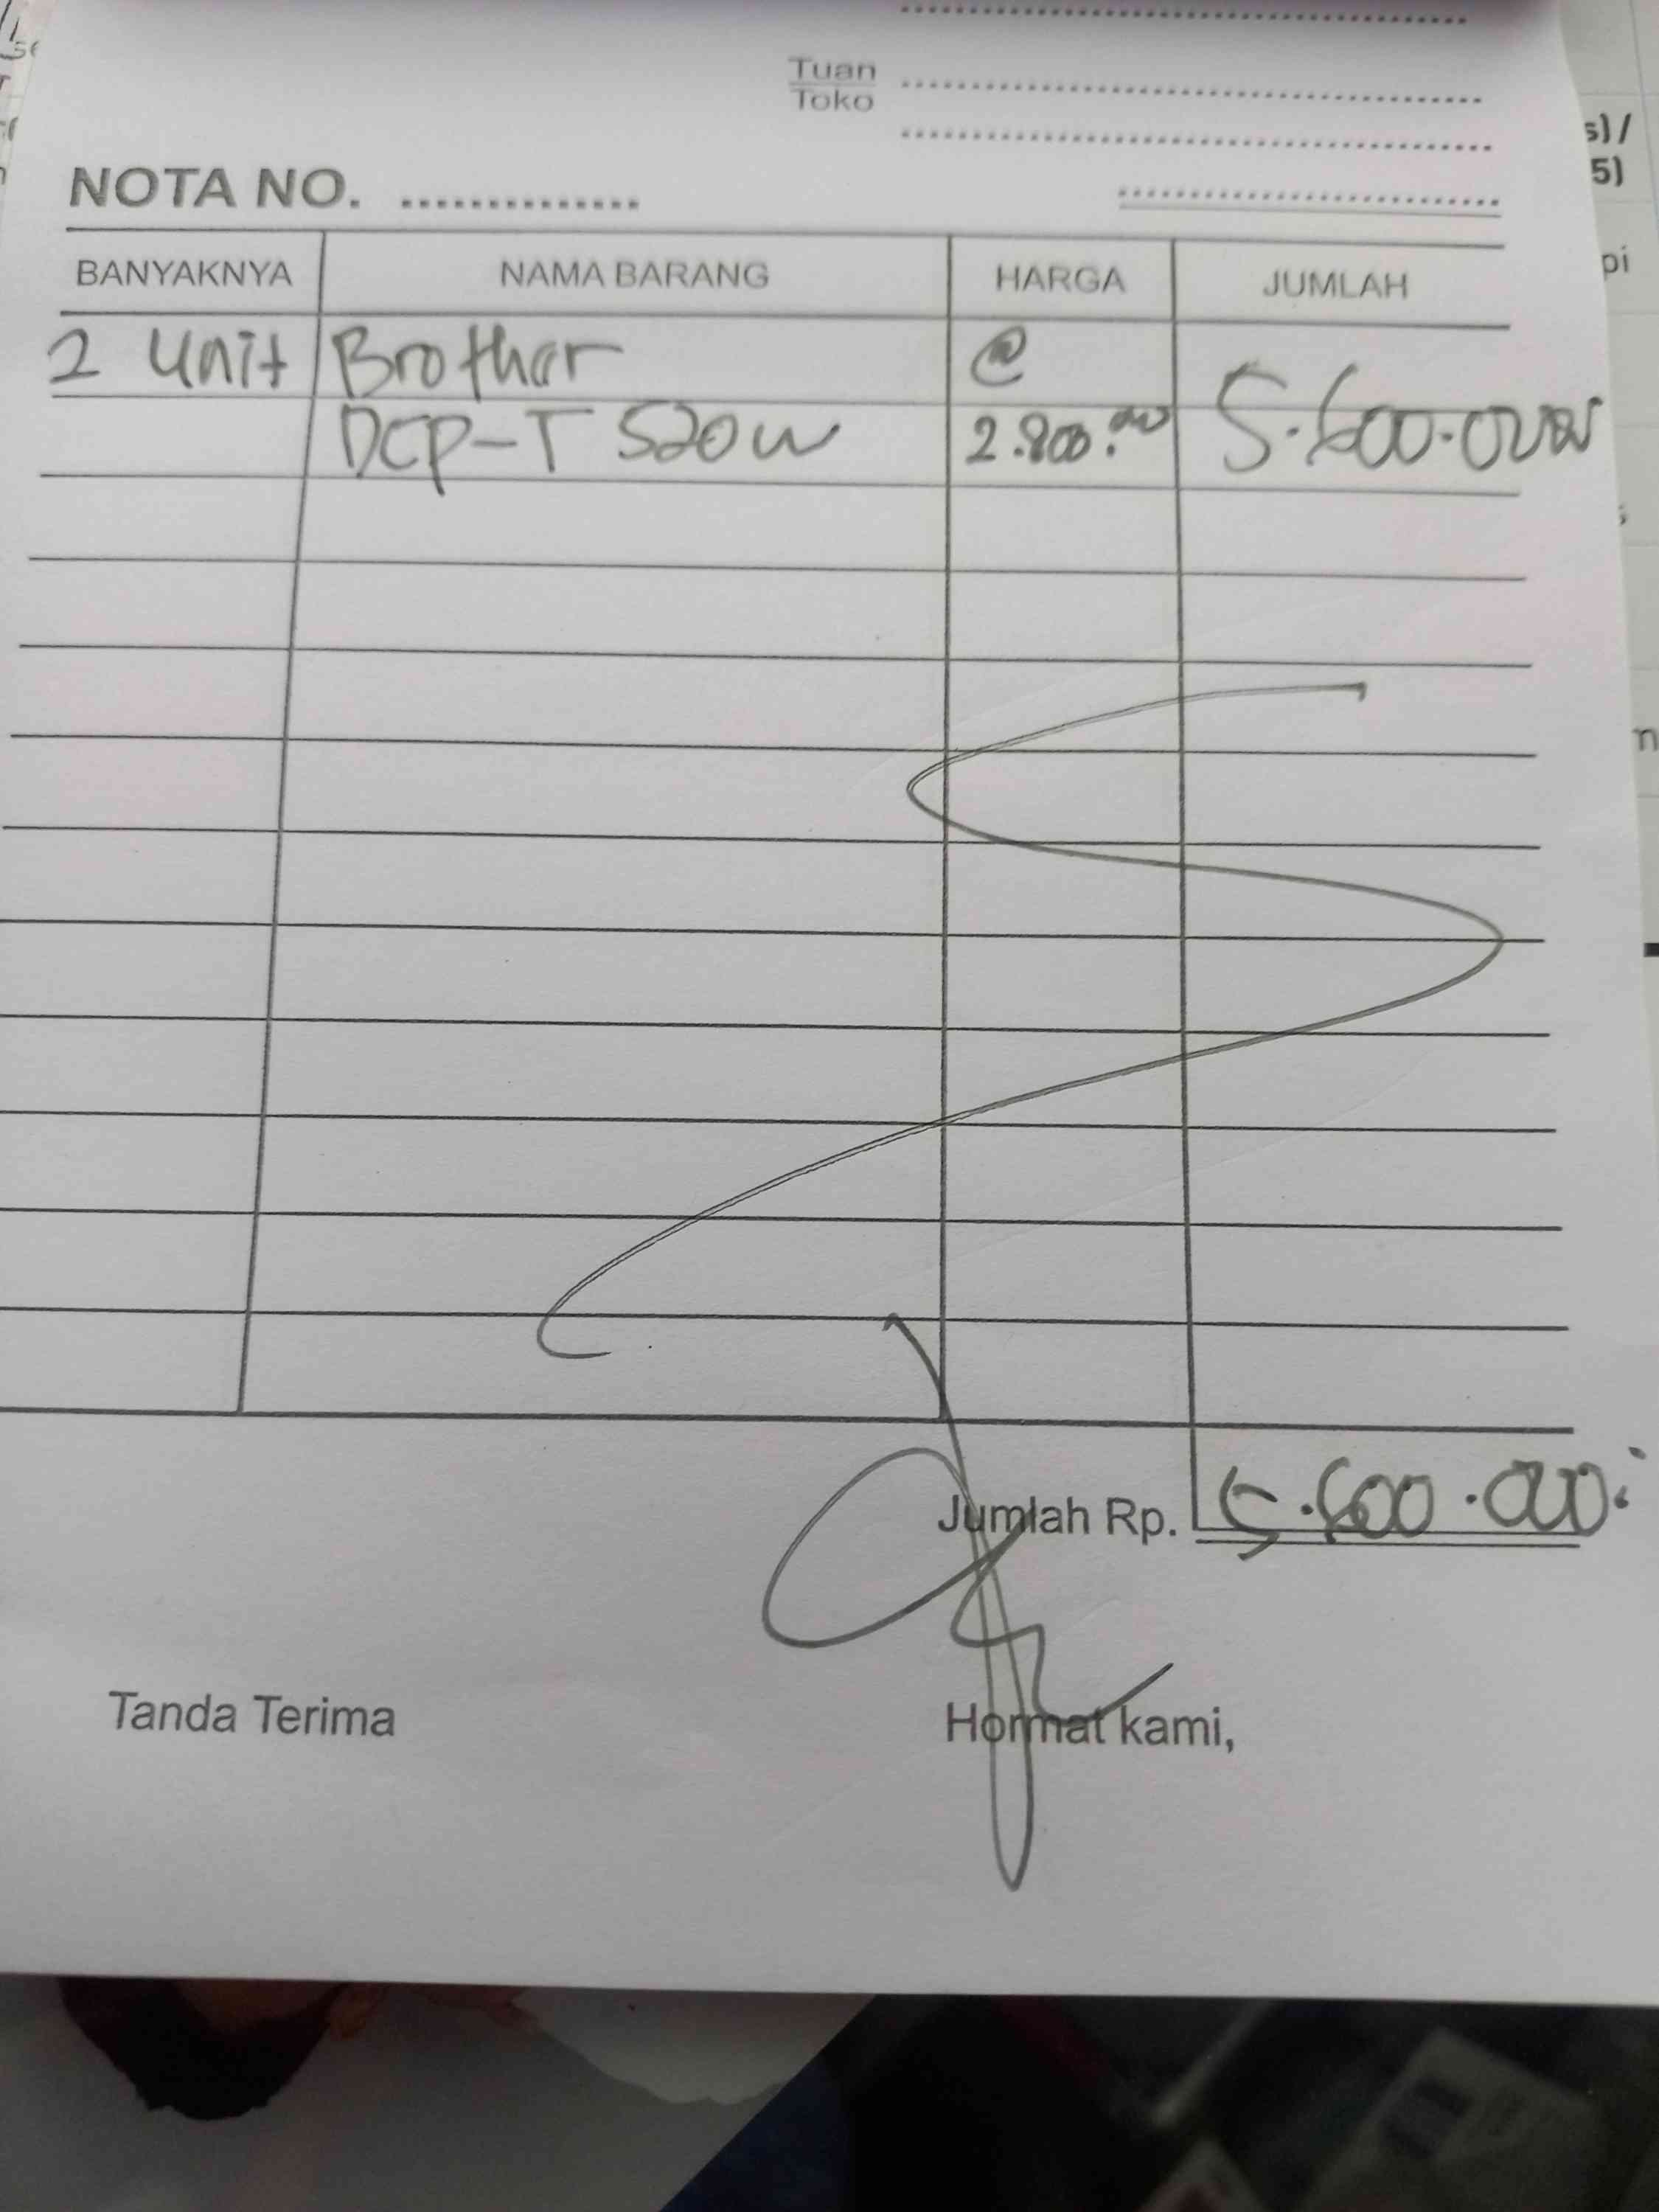 Tuan
Toko
NOTA NO.
BANYAKNYA NAMA BARANG HARGA JUMLAH
2 Unit Brother @
DCP-T 520W 2.800.000 5.600.000
Jumlah Rp. 5.600.000
Tanda Terima Hormat kami,